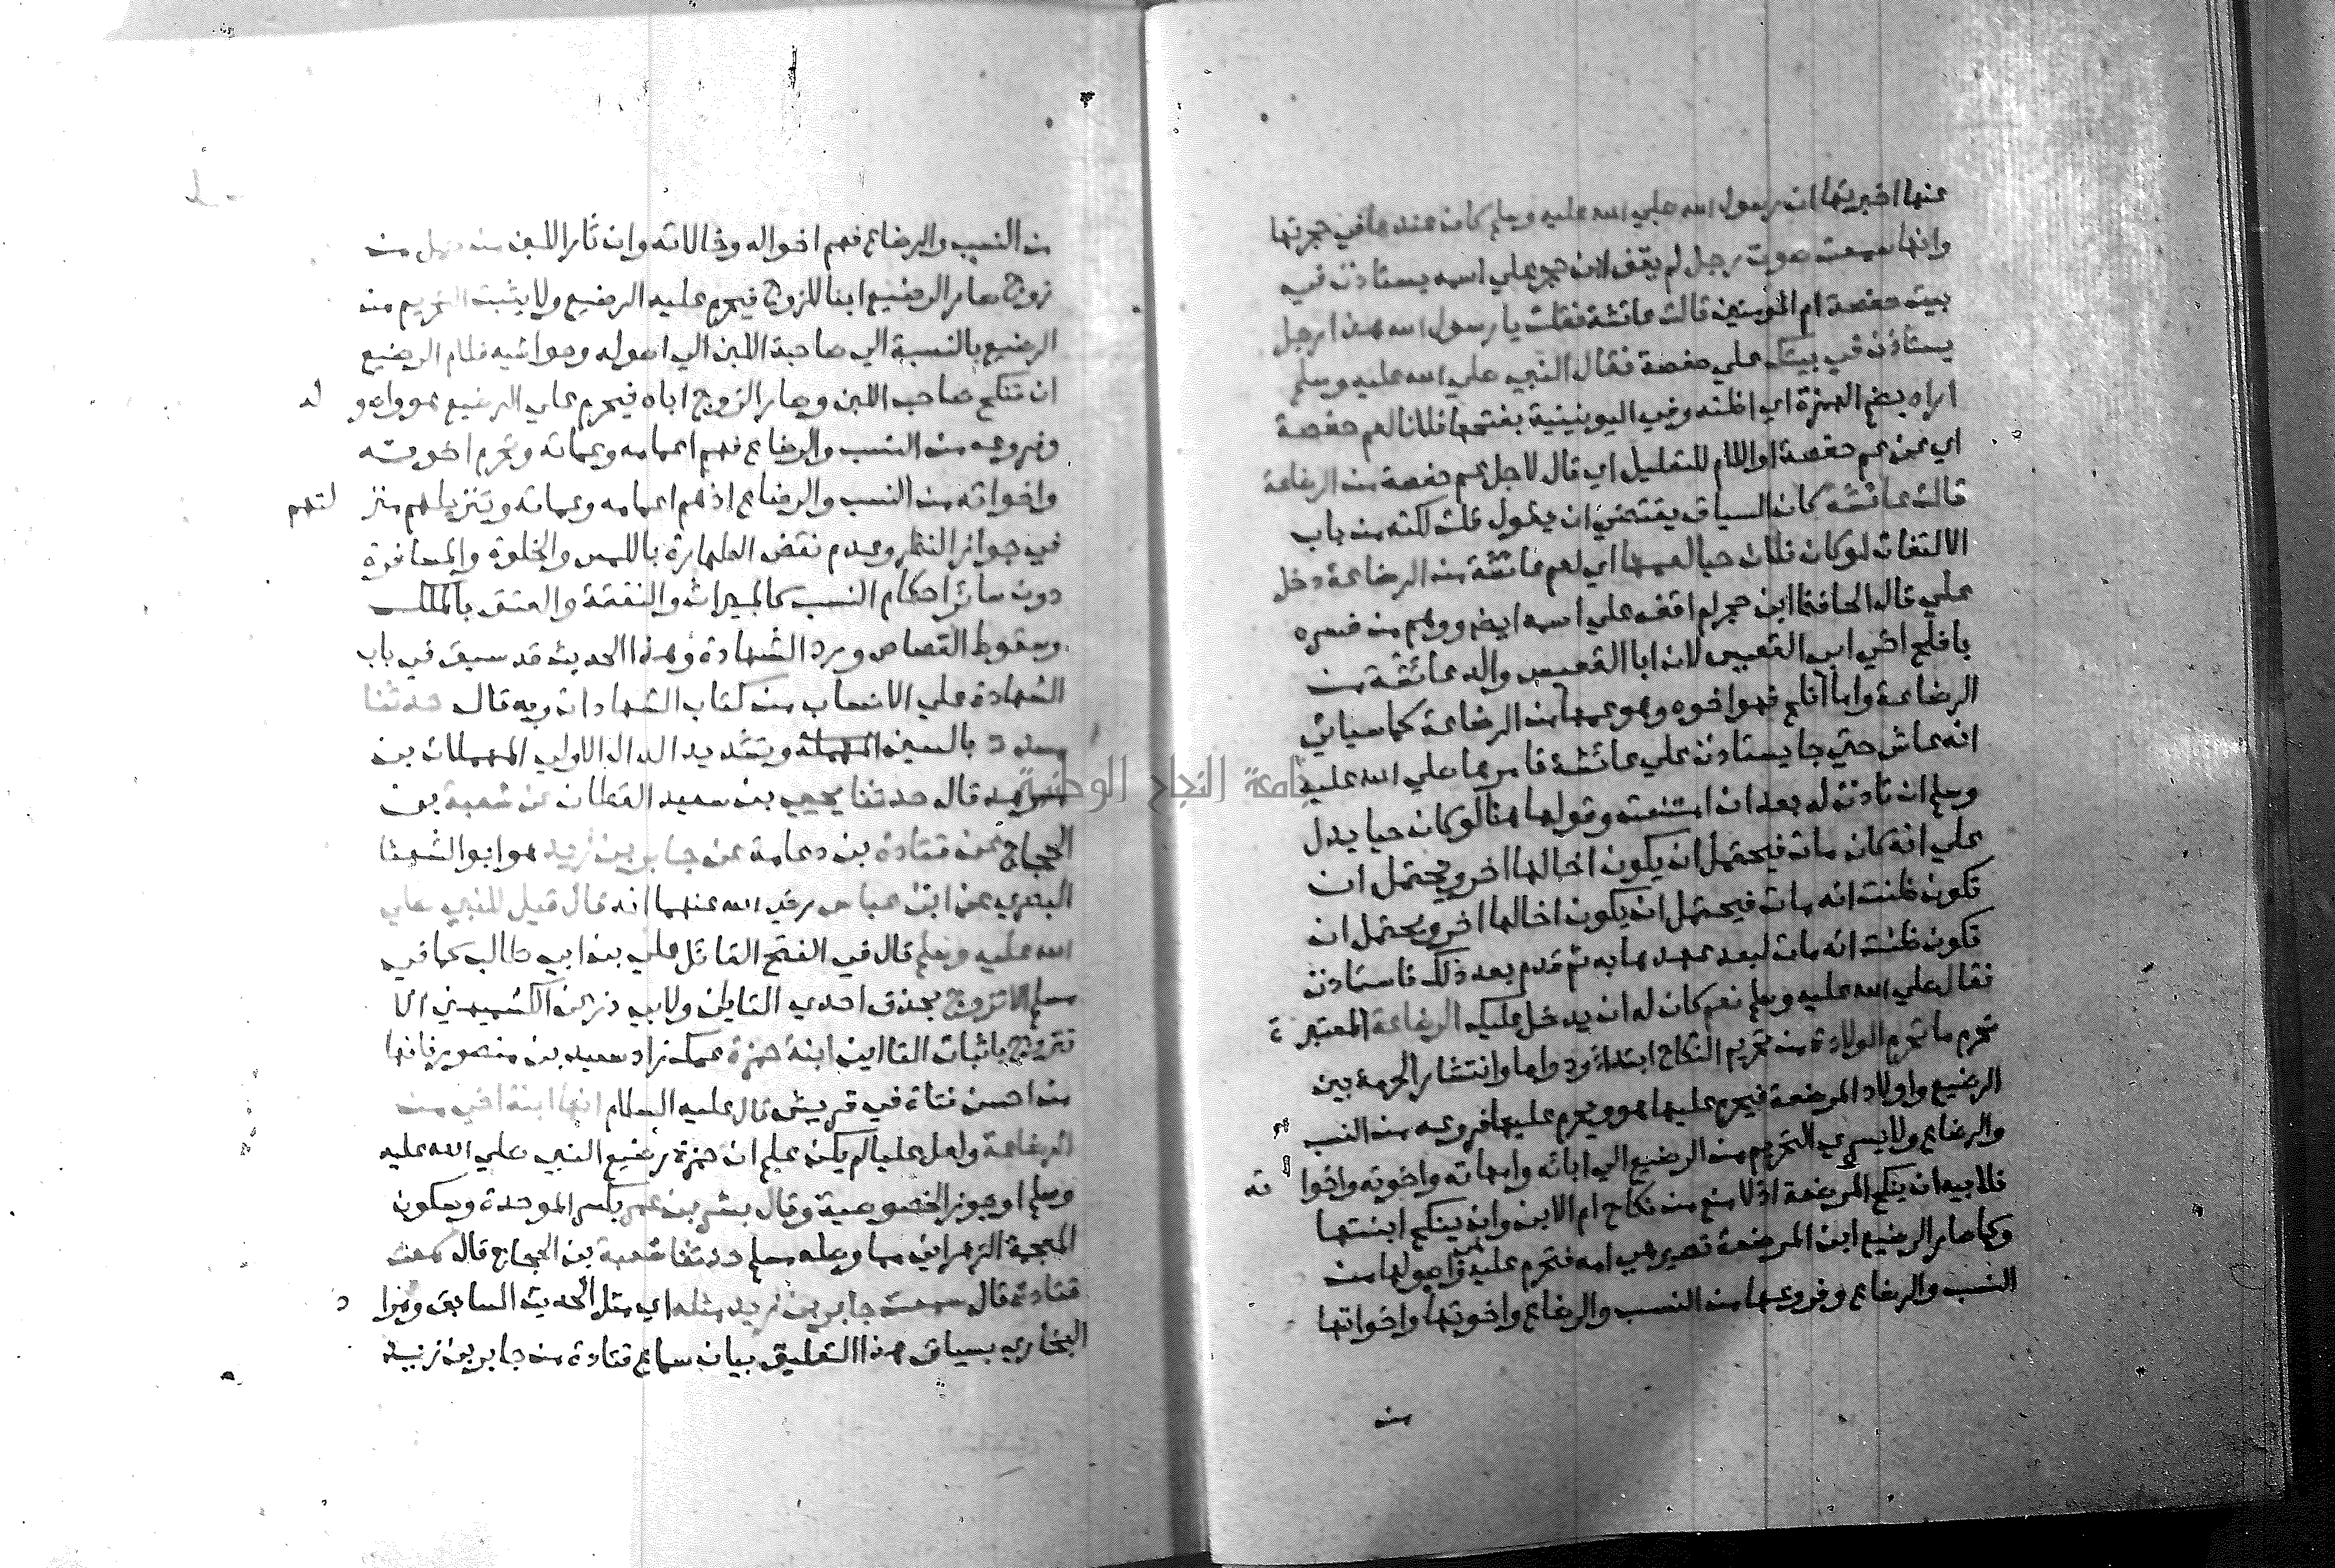 عنها اخبرتها ان رسول الله صلي الله عليه وسلم كان عندها في حجرتها
وانها سمعت صوت رجل لم يقف لابن حجر علي اسمه يستاذن في
بيت حفصة ام المؤمنين قالت عائشة فقلت يا رسول الله هذا رجل
يستاذن في بيتك علي حفصة فقال النبي صلي الله عليه وسلم
اراه بضم الهمزة اي اظنه وفي اليونينية بفتحها فلانا لعم حفصة
اي عن عم حفصة او اللام للتعليل اي قال لاجل عم حفصة من الرضاعة
قالت عائشة كان السياق يقتضي ان يقول قلت لكنه من باب
الالتفات لو كان فلان حيا لعمها اي لعم عائشة من الرضاعة دخل
علي قال الحافظ ابن حجر لم اقف علي اسمه ايض ووهم من فسره
بافلح اخي ابي القعيس لان ابا القعيس والد عائشة من
الرضاعة واما افلح فهو اخوه وهو عمها من الرضاعة كما سياتي
انه عاش حتي جا يستاذن علي عائشة فامرها صلي الله عليه
وسلم ان تاذن له بعد ان امتنعت وقولها هنا لو كان حيا يدل
علي انه كان مات فيحتمل ان يكون اخا لها اخر ويحتمل ان
تكون ظننت انه مات فيحتمل ان يكون اخا لها اخر ويحتمل ان
تكون ظننت انه مات لبعد عهدها به ثم قدم بعد ذلك فاستاذن
فقال صلي الله عليه وسلم نعم كان له ان يدخل عليك الرضاعة المعتبرة
تحرم ما تحرم الولادة من تحريم النكاح ابتداء ودواما وانتشار الحرمة بين
الرضيع واولاد المرضعة فيحرم عليها هو ويحرم عليها فروعه من النسب
والرضاع ولا يسري التحريم من الرضيع الي ابائه وامهاته واخوته واخواته
فلابيه ان ينكح المرضعة اذ لا منع من نكاح ام الابن وان ينكح ابنتها
وكما صار الرضيع ابن المرضعة تصير هي امه فتحرم عليه هي واصولها من
النسب والرضاع وفروعها من النسب والرضاع واخوتها واخواتها
من
من النسب والرضاع فهم اخواله وخالاته وان ثار اللبن من من
زوج صار الرضيع ابنا للزوج فيحرم عليه الرضيع ولا يثبت التحريم من
الرضيع بالنسبة الي صاحبة اللبن الي اصوله وحواشيه فلام الرضيع
ان تنكح صاحب اللبن وصار الزوج اباه فيحرم علي الرضيع هو واصوله
وفروعه من النسب والرضاع فهم اعمامه وعماته وتحرم اخوته
واخواته من النسب والرضاع اذ هم اعمامه وعماته وتنزيلهم منزلتهم
في جواز النظر وعدم نقض الطهارة باللمس والخلوة والمسافرة
دون سائر احكام النسب كالميراث والنفقة والعتق بالملك
وسقوط القصاص ورد الشهادة وهذا الحديث قد سبق في باب
الشهادة علي الانساب من كتاب الشهادات وبه قال حدثنا
مسدد بالسين المهملة وتشديد الدال الاولي المهملات بن
مسرهد قال حدثنا يحيي بن سعيد القطان عن شعبة بن
الحجاج عن قتادة بن دعامة عن جابر بن زيد هو ابو الشعثا
البصري عن ابن عباس رضي الله عنهما انه قال قيل للنبي صلي
الله عليه وسلم قال في الفتح القائل علي بن ابي طالب كما في
مسلم الا تزوج بحذف احدي التاين ولابي ذر عن الكشميهني الا
تتزوج باثبات التااين ابنة حمزة عمك زاد سعيد بن منصور فانها
من احسن فتاة في قريش قال عليه السلام انها ابنة اخي من
الرضاعة ولعل عليا لم يكن علم ان حمزة رضيع النبي صلي الله عليه
وسلم او جوز الخصوصية وقال بشر بن عمر بكسر الموحدة وسكون
المعجمة الزهراني مما وصله مسلم حدثنا شعبة بن الحجاج قال سمعت
قتادة قال سمعت جابر بن زيد مثله اي مثل الحديث السابق ومراد
البخاري بسياق هذا التعليق بيان سماع قتادة من جابر بن زيد
جامعة النجاح الوطنية